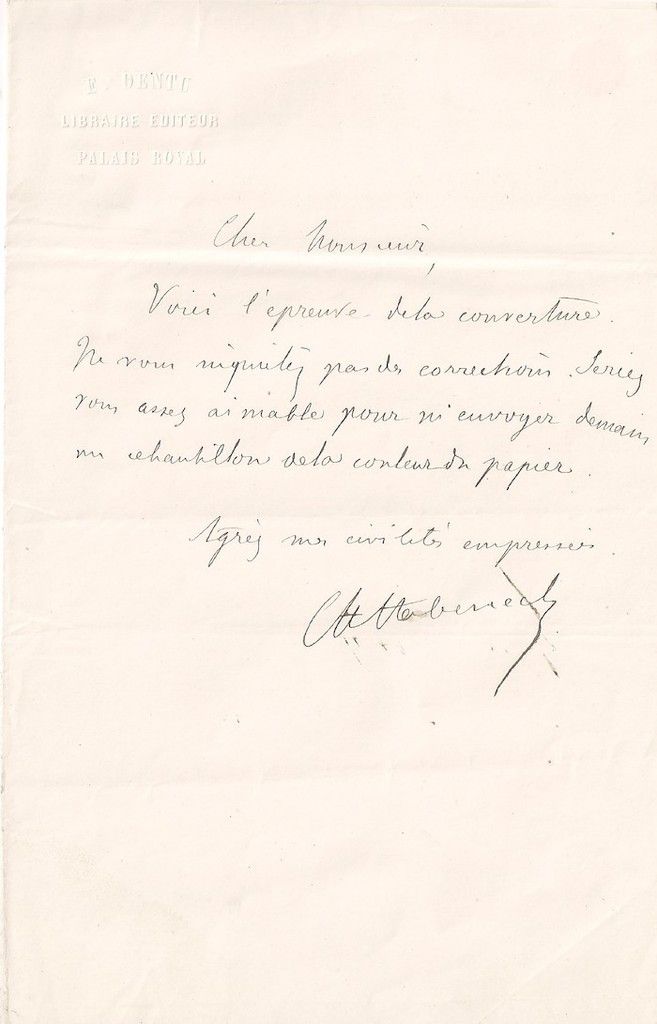 E. DENTU
LIBRAIRE EDITEUR
PALAIS ROYAL
Cher Monsieur,
Voici l'épreuve de la couverture.
Ne vous inquiétez pas des corrections. Seriez
vous assez aimable pour m'envoyer demain
un échantillon de la couleur du papier.
Agréez mes civilités empressées.